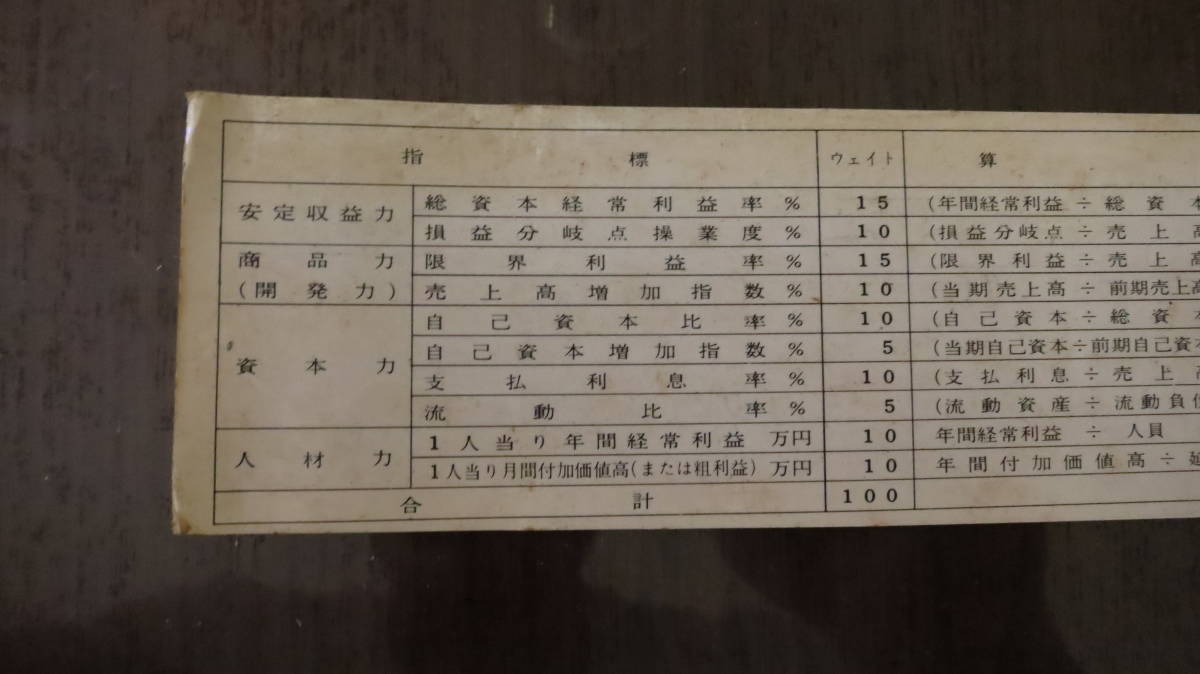 指標 ウェイト 算
安定収益力 総資本経常利益率% 15 (年間経常利益÷総資本
損益分岐点操業度% 10 (損益分岐点÷売上高
商品力 限界利益率% 15 (限界利益÷売上高
(開発力) 売上高増加指数% 10 (当期売上高÷前期売上高
自己資本比率% 10 (自己資本÷総資本
資本力 自己資本増加指数% 5 (当期自己資本÷前期自己資本
支払利息率% 10 (支払利息÷売上高
流動比率% 5 (流動資産÷流動負債
人材力 1人当り年間経常利益 万円 10 年間経常利益÷人員
1人当り月間付加価値高(または粗利益) 万円 10 年間付加価値高÷延
合計 100